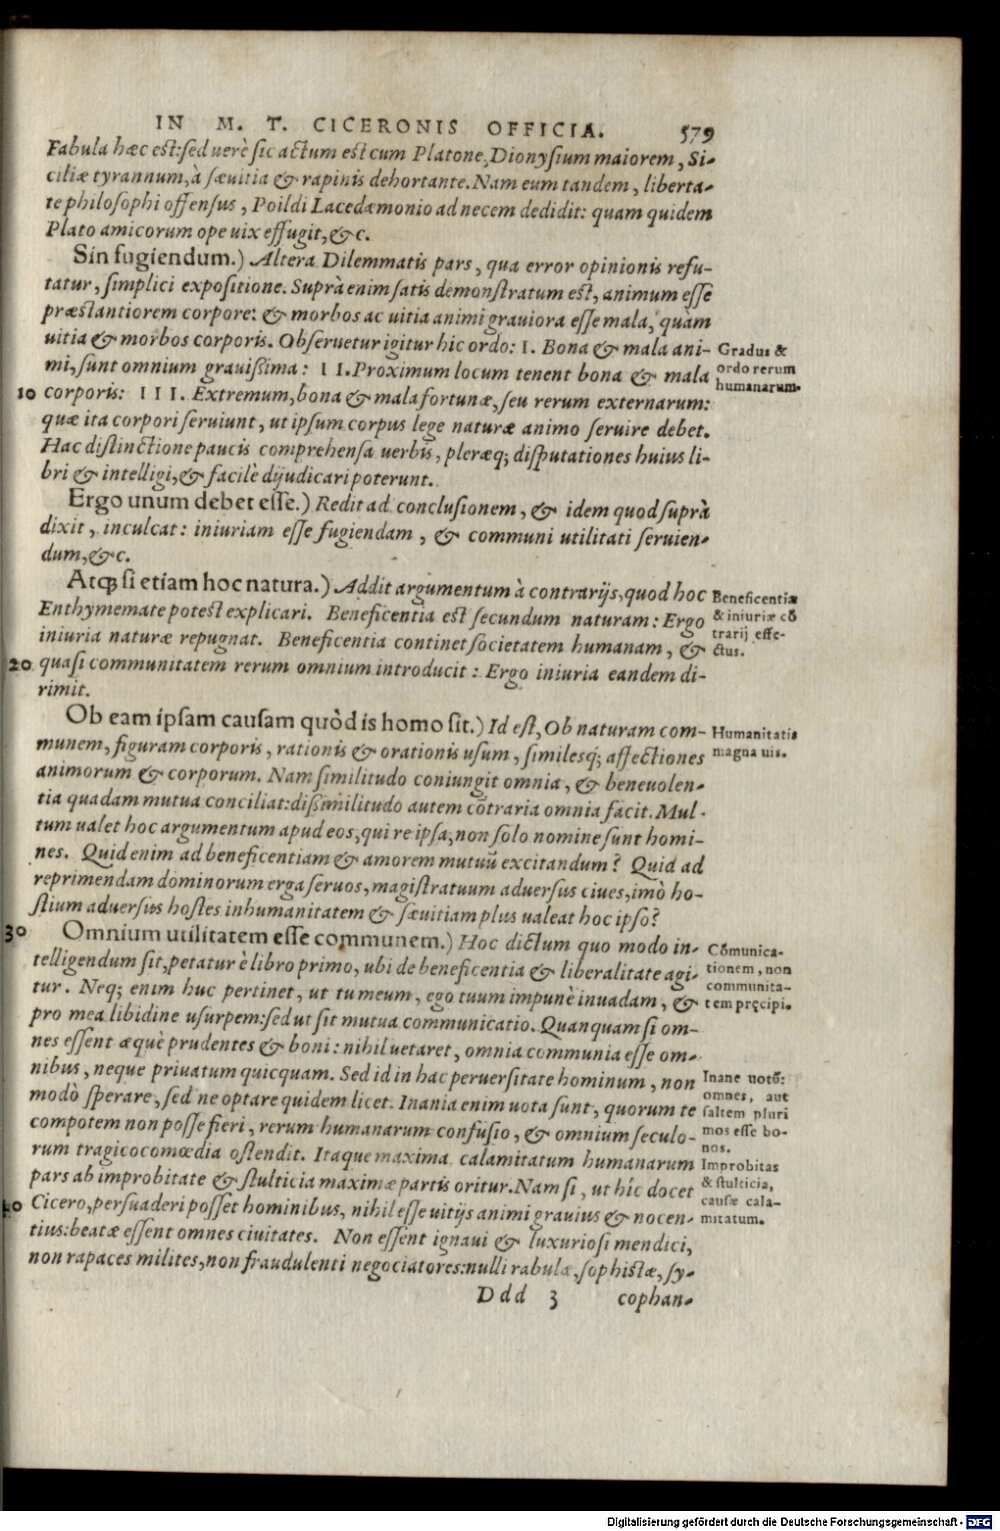 IN M. T. CICERONIS OFFICIA. 579
Fabula hæc est:sed uerè sic actum est cum Platone, Dionysium maiorem, Si-
ciliæ tyrannum, à sæuitia & rapinis dehortante. Nam eum tandem, liberta-
te philosophi offensus, Poildi Lacedæmonio ad necem dedidit: quam quidem
Plato amicorum ope uix effugit, &c.
Sin fugiendum.) Altera Dilemmatis pars, qua error opinionis refu-
tatur, simplici expositione. Suprà enim satis demonstratum est, animum esse
præstantiorem corpore: & morbos ac uitia animi grauiora esse mala, quàm
uitia & morbos corporis. Obseruetur igitur hic ordo: I. Bona & mala ani-
mi, sunt omnium grauißima: II. Proximum locum tenent bona & mala
10 corporis: III. Extremum, bona & mala fortunæ, seu rerum externarum:
quæ ita corpori seruiunt, ut ipsum corpus lege naturæ animo seruire debet.
Hac distinctione paucis comprehensa uerbis, pleræq; disputationes huius li-
bri & intelligi, & facilè dijudicari poterunt.
Gradus &
ordo rerum
humanarum.
Ergo unum debet esse.) Redit ad conclusionem, & idem quod suprà
dixit, inculcat: iniuriam esse fugiendam, & communi utilitati seruien-
dum, &c.
Atq; si etiam hoc natura.) Addit argumentum à contrarijs, quod hoc
Enthymemate potest explicari. Beneficentia est secundum naturam: Ergo
iniuria naturæ repugnat. Beneficentia continet societatem humanam, &
20 quasi communitatem rerum omnium introducit: Ergo iniuria eandem di-
rimit.
Beneficentiæ
& iniuriæ cō
trarij effe-
ctus.
Ob eam ipsam causam quòd is homo sit.) Id est, Ob naturam com-
munem, figuram corporis, rationis & orationis usum, similesq; affectiones
animorum & corporum. Nam similitudo coniungit omnia, & beneuolen-
tia quadam mutua conciliat:dißimilitudo autem cōtraria omnia facit. Mul-
tum ualet hoc argumentum apud eos, qui re ipsa, non solo nomine sunt homi-
nes. Quid enim ad beneficentiam & amorem mutuū excitandum? Quid ad
reprimendam dominorum erga seruos, magistratuum aduersus ciues, imò ho-
stium aduersus hostes inhumanitatem & sæuitiam plus ualeat hoc ipso?
Humanitatis
magna uis.
30 Omnium utilitatem esse communem.) Hoc dictum quo modo in-
telligendum sit, petatur è libro primo, ubi de beneficentia & liberalitate agi-
tur. Neq; enim huc pertinet, ut tu meum, ego tuum impunè inuadam, &
pro mea libidine usurpem:sed ut sit mutua communicatio. Quanquam si om-
nes essent æquè prudentes & boni: nihil uetaret, omnia communia esse om-
nibus, neque priuatum quicquam. Sed id in hac peruersitate hominum, non
modò sperare, sed ne optare quidem licet. Inania enim uota sunt, quorum te
compotem non posse fieri, rerum humanarum confusio, & omnium seculo-
rum tragicocomœdia ostendit. Itaque maxima calamitatum humanarum
pars ab improbitate & stulticia maximæ partis oritur. Nam si, ut hîc docet
40 Cicero, persuaderi posset hominibus, nihil esse uitijs animi grauius & nocen-
tius:beatæ essent omnes ciuitates. Non essent ignaui & luxuriosi mendici,
non rapaces milites, non fraudulenti negociatores:nulli rabulæ, sophistæ, sy-
Cōmunica-
tionem, non
communita-
tem pręcipi.
Inane uotū:
omnes, aut
saltem pluri
mos esse bo-
nos.
Improbitas
& stulticia,
causæ cala-
mitatum.
Ddd 3 cophan-
Digitalisierung gefördert durch die Deutsche Forschungsgemeinschaft - DFG